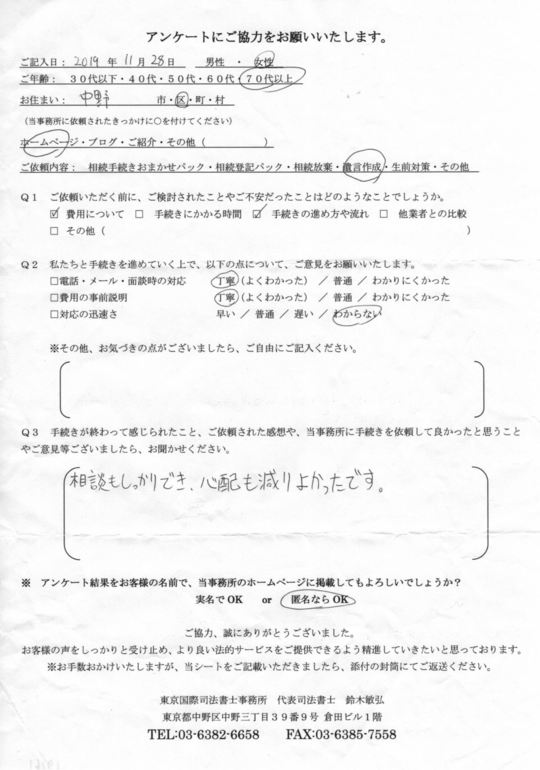 アンケートにご協力をお願いいたします。
ご記入日： 2019 年 11 月 28 日　男性 ・ 女性
ご年齢： ３０代以下・４０代・５０代・６０代・７０代以上
お住まい： 中野　市・区・町・村
（当事務所に依頼されたきっかけに○を付けてください）
ホームページ・ブログ・ご紹介・その他（　　　　　）
ご依頼内容： 相続手続きおまかせパック・相続登記パック・相続放棄・遺言作成・生前対策・その他
Ｑ１　ご依頼いただく前に、ご検討されたことやご不安だったことはどのようなことでしょうか。
☑ 費用について　□ 手続きにかかる時間　☑ 手続きの進め方や流れ　□ 他業者との比較
□ その他（　　　　　）
Ｑ２　私たちと手続きを進めていく上で、以下の点について、ご意見をお願いいたします。
□電話・メール・面談時の対応　丁寧（よくわかった） ／ 普通 ／ わかりにくかった
□費用の事前説明　丁寧（よくわかった） ／ 普通 ／ わかりにくかった
□対応の迅速さ　早い ／ 普通 ／ 遅い ／ わからない
※その他、お気づきの点がございましたら、ご自由にご記入ください。
Ｑ３　手続きが終わって感じられたこと、ご依頼された感想や、当事務所に手続を依頼して良かったと思うこと
やご意見等ございましたら、お聞かせください。
相談もしっかりでき、心配も減りよかったです。
※ アンケート結果をお客様の名前で、当事務所のホームページに掲載してもよろしいでしょうか？
実名でOK　or　匿名ならOK
ご協力、誠にありがとうございました。
お客様の声をしっかりと受け止め、より良い法的サービスをご提供できるよう精進していきたいと思っております。
※お手数おかけいたしますが、当シートをご記載いただきましたら、添付の封筒にてご返送ください。
東京国際司法書士事務所　代表司法書士　鈴木敏弘
東京都中野区中野三丁目３９番９号 倉田ビル１階
TEL:03-6382-6658　FAX:03-6385-7558